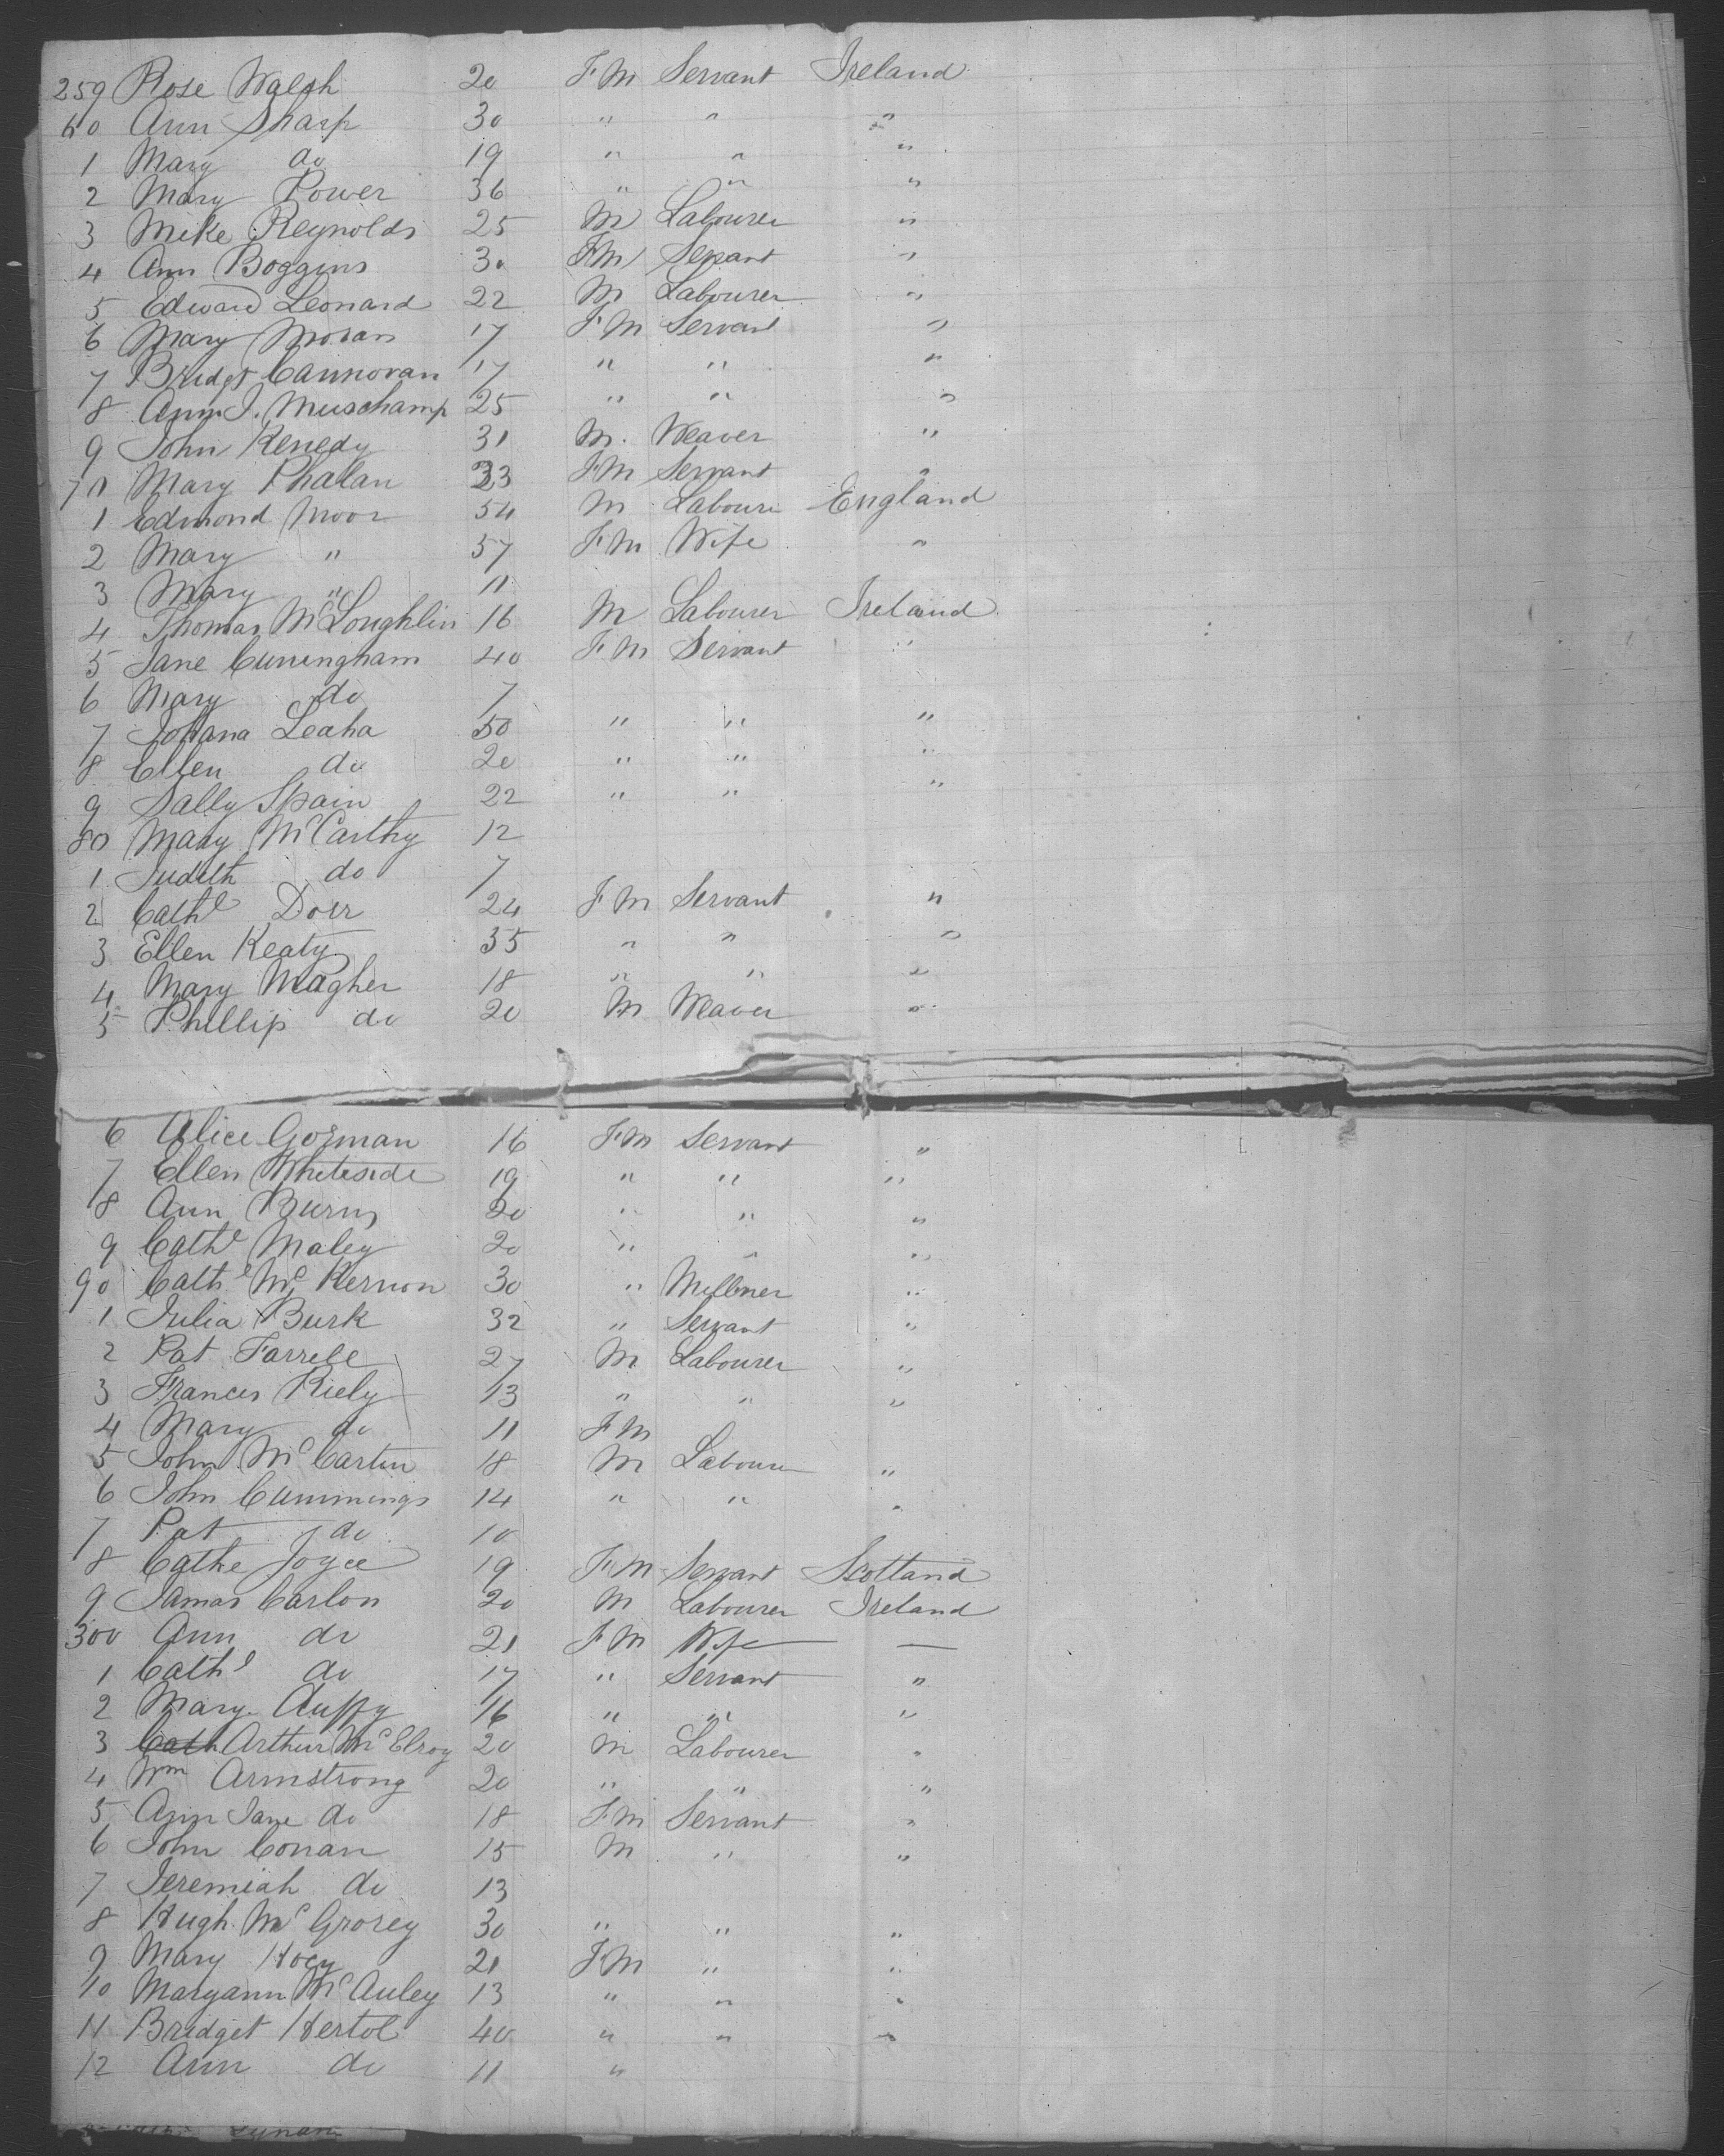 259 Rose Walsh 20 F M Servant Ireland
60 Ann Sharp 30 " " "
1 Mary do 19 " " "
2 Mary Power 36 " " "
3 Mike Reynolds 25 M Labourer "
4 Ann Boggins 30 F M Servant "
5 Edward Leonard 22 M Labourer "
6 Mary Moran 17 F M Servant "
7 Bridgt Cannovan 17 " " "
8 Ann J. Muschamp 25 " " "
9 John Kenedy 31 M. Weaver "
70 Mary Phalan 33 F M Servant "
1 Edmond Moor 54 M Labourer England
2 Mary " 57 F M Wife "
3 Mary " 11
4 Thomas McLoughlin 16 M Labourer Ireland
5 Jane Cuningham 40 F M Servant "
6 Mary do 7
7 Johana Leaha 50 " " "
8 Ellen do 20 " " "
9 Sally Spain 22 " " "
80 Mary McCarthy 12
1 Judith do 7
2 Cathe Doer 24 F M Servant "
3 Ellen Keaty 35 " " "
4 Mary Magher 18 " " "
5 Phillip do 20 M Weaver "
6 Alice Gorman 16 F M Servant "
7 Ellen Whiteside 19 " " "
8 Ann Burns 20 " " "
9 Cathe Maley 20 " " "
90 Cathe McKernon 30 " Millner "
1 Julia Burk 32 " Servant "
2 Pat Farrell 27 M Labourer "
3 Frances Riely 13 " " "
4 Mary do 11 F M
5 John McCartin 18 M Labourer "
6 John Cummings 14 " " "
7 Pat do 10
8 Cathe Joyce 19 F M Servant Scotland
9 James Carlon 20 M Labourer Ireland
300 Ann do 21 F M Wife —
1 Cathe do 17 " Servant "
2 Mary Duffy 16 " " "
3 Cath Arthur McElroy 20 M Labourer "
4 Wm Armstrong 20 " " "
5 Ann Jane do 18 F M Servant "
6 John Conan 15 M " "
7 Jeremiah do 13
8 Hugh McGrorey 30 " " "
9 Mary Hoey 21 F M " "
10 Maryann McAuley 13 " " "
11 Bridget Hertol 40 " " "
12 Ann do 11 "